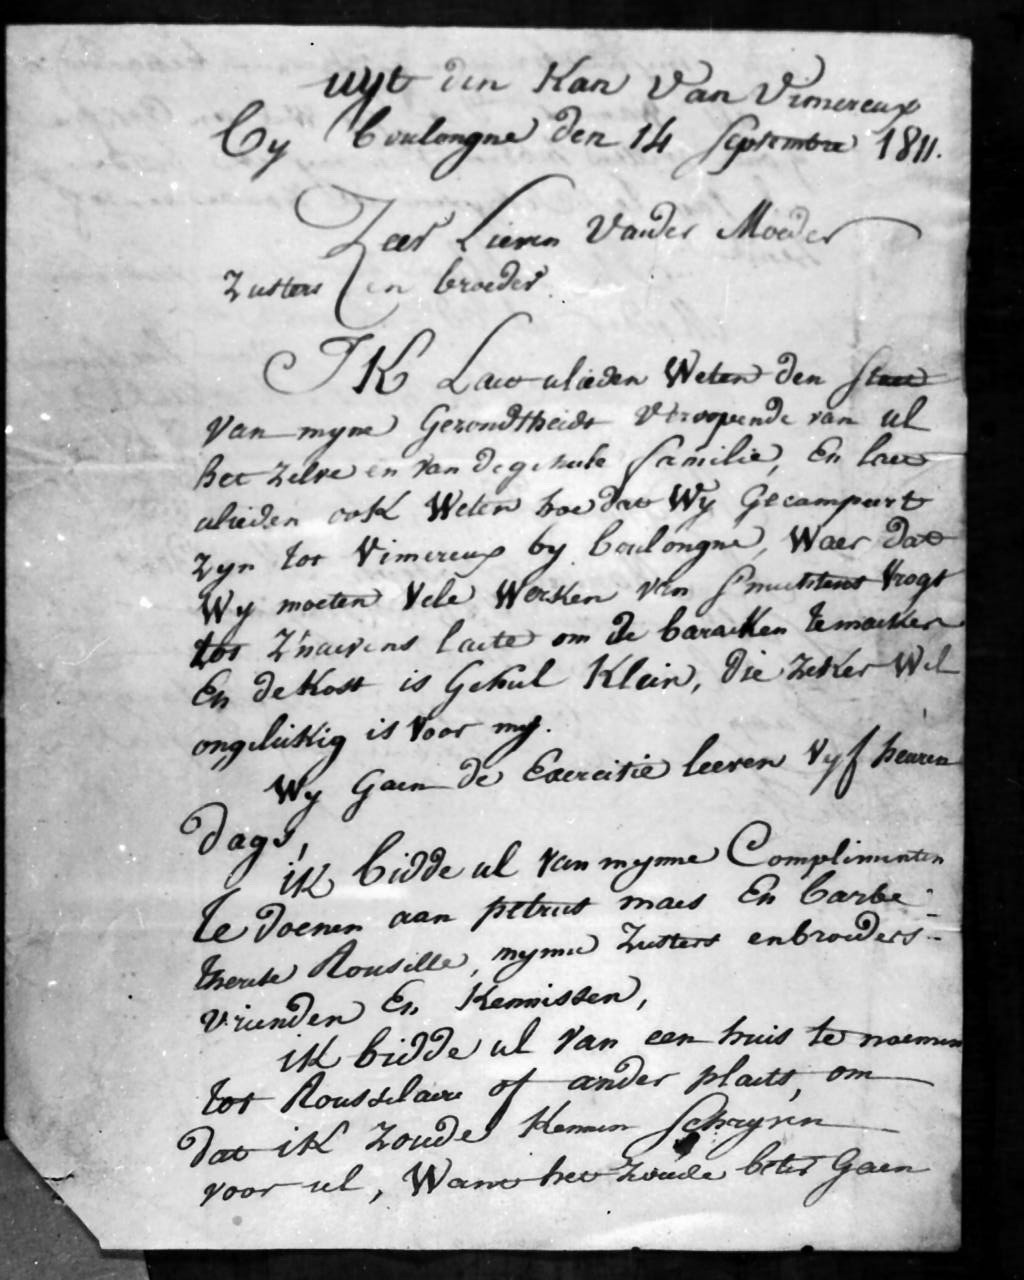 uyt den Kan Van Vimereux
by boulongne den 14 Septembre 1811.
Zeer Lieven Vander Moeder
Zusters en broeder.
IK Laet ulieden Weten den staet
van myne Gezondtheidt veropende van ul
het zelve en van de geheele familie, En laet
ulieden ook Weten hoe dat Wy Gecampeert
zyn tot Vimereux by boulongne, Waer dat
Wy moeten Vele Werken van smuchtens vrogt
tot z'naevens laete om de baracken te maeken
En de kost is Geheel Klein, die zeker Wel
ongelukkig is voor my.
Wy Gaen de Exercitie leeren vyf heuren
dags,
ik bidde ul van mynne Complimenten
te doenen aan petrus maes En barbe
therese Rouselle, mynne Zusters en broeders-
vrienden En Kennissen,
ik bidde ul van een huis te noemen
tot Rousselaere of ander plaets, om
dat ik zoude kennen schryven
voor ul, Want het zoude beter Gaen